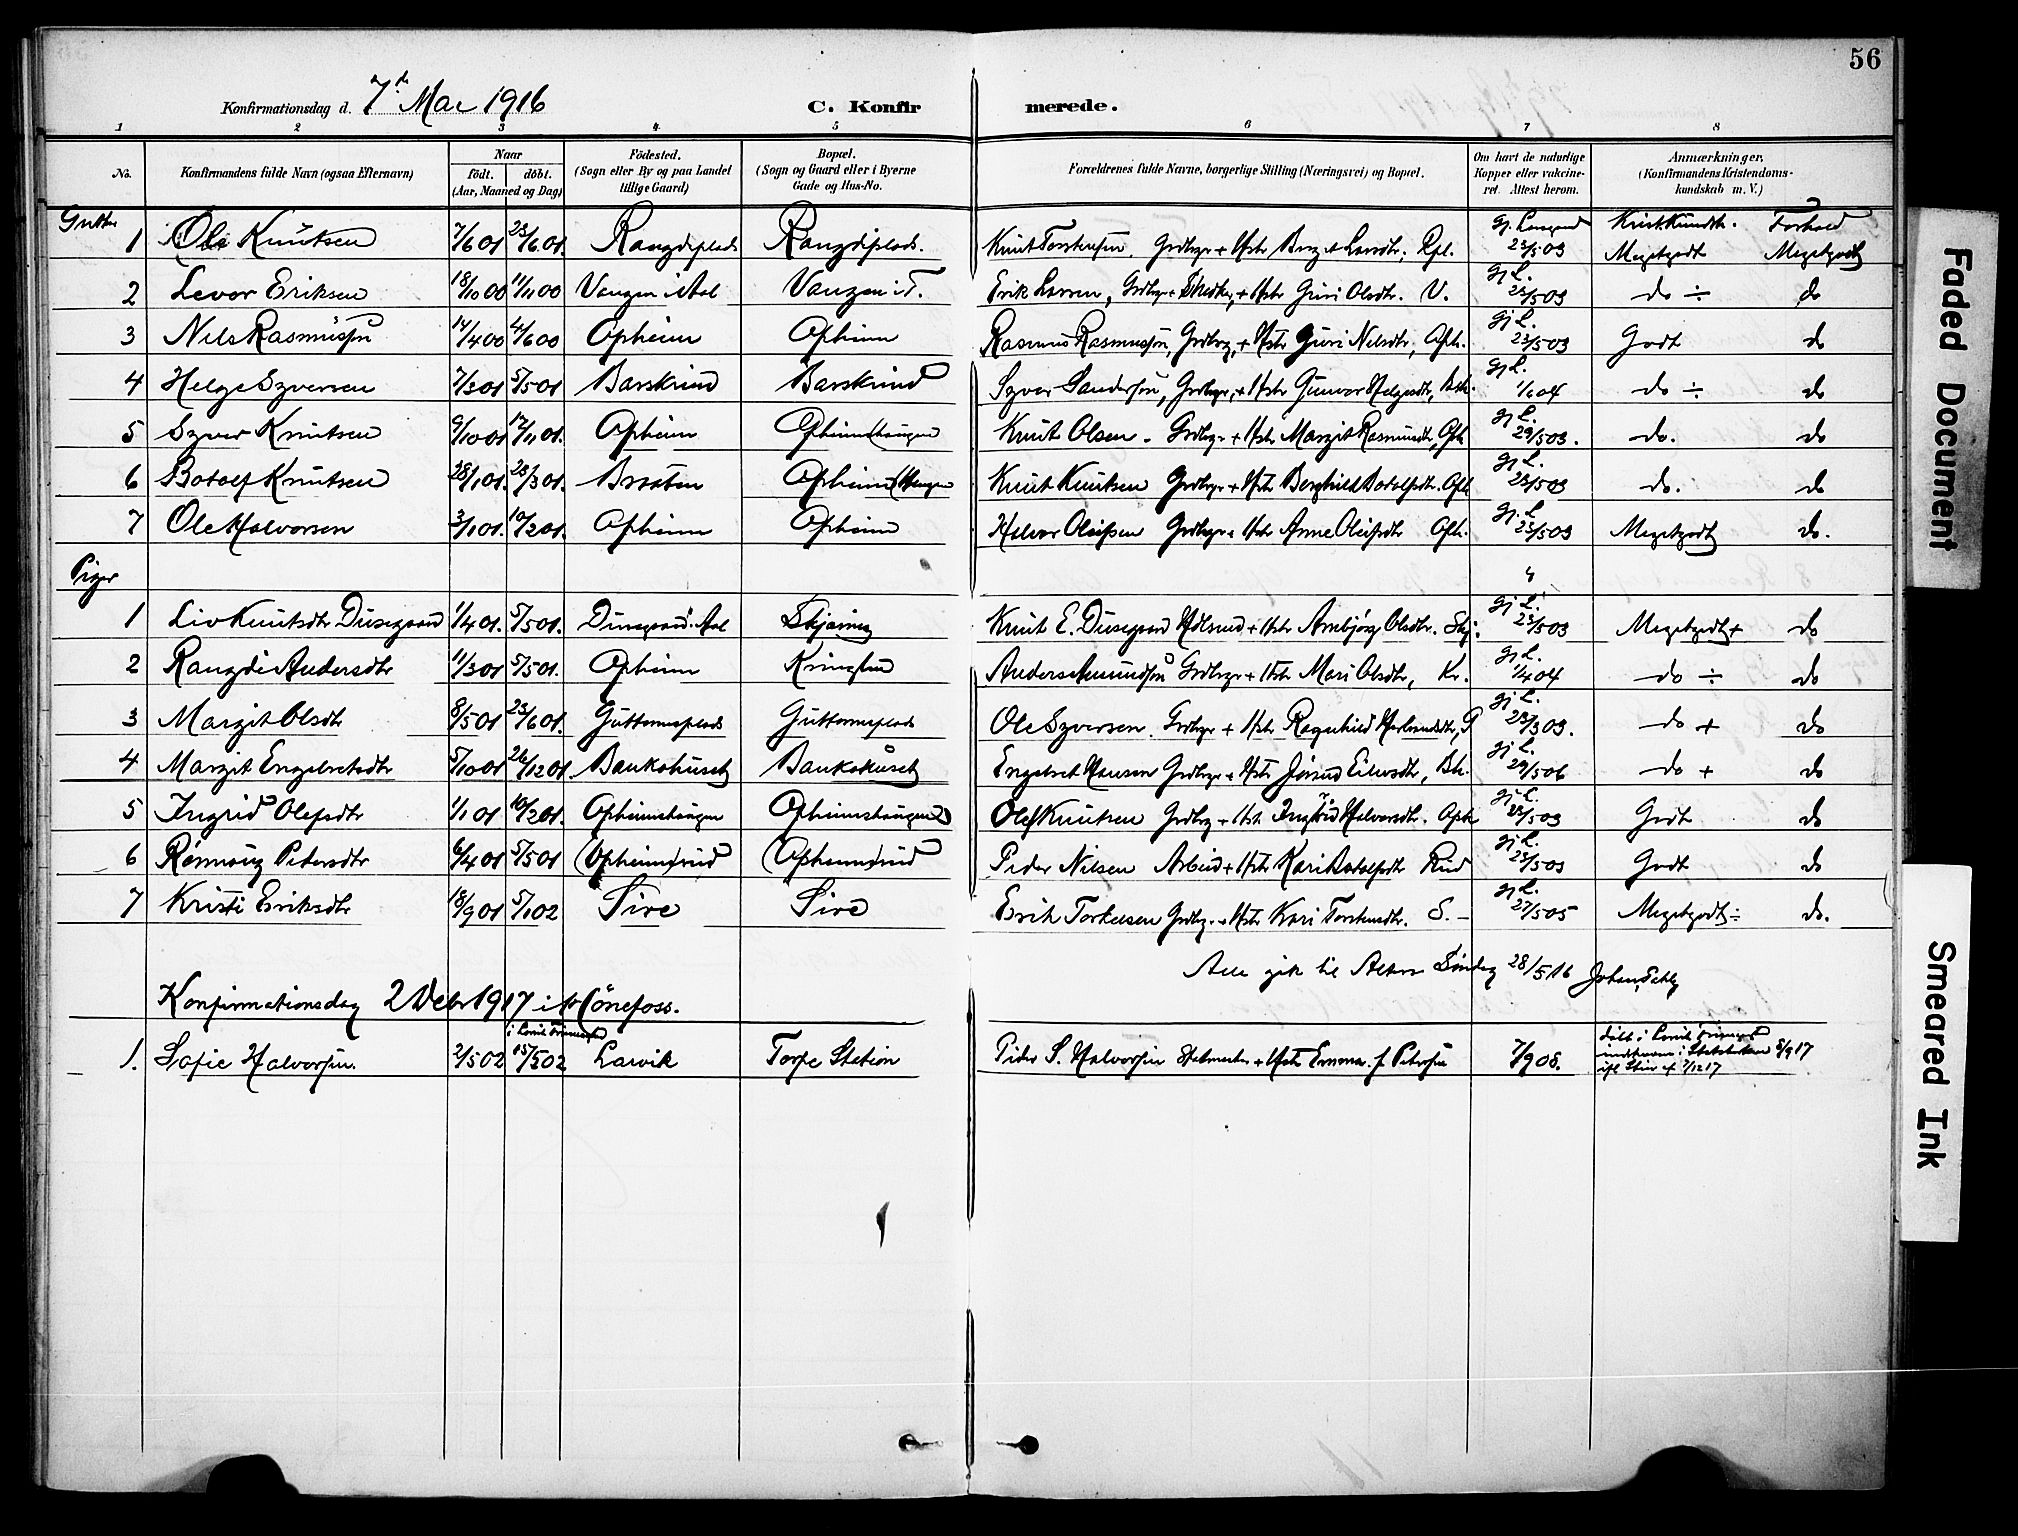 56
Konfirmationsdag d. 7de Mai 1916 C. Konfirmerede.
1 2 3 4 5 6 7 8
No. Konfirmandens fulde Navn (ogsaa Efternavn) Naar født. døbt. (Aar, Maaned og Dag) Fødested. (Sogn eller By og paa Landet tillige Gaard) Bopæl. (Sogn og Gaard eller i Byerne Gade og Hus-No. Forældrenes fulde Navne, borgerlige Stilling (Næringsvei) og Bopæl. Om havt de naturlige Kopper eller vakcineret. Attest herom. Anmærkninger. (Konfirmandens Kristendomskundskab m. V.)
Gutter
Krist.Kundsk. Forhold
1 Ole Knutsen 7/6 01 23/6 01. Rangdiplads Rangdiplads. Knut Torstensen, Grdbrgr + Hstr Birgit Larsdtr. Rpl. 23/5 03 Megetgodt Megetgodt
2 Levor Eriksen 18/10 00 11/11 00 Vangen i Aal Vangen i T. Erik Larsen, Grdbrgr + Hstr Guri Olsdtr. V. gj L. 23/5 03 do ÷ do
3 Nils Rasmussen 14/4 00 4/6 00 Opheim Opheim Rasmus Rasmussen, Grdbrg, + Hstr Guri Nilsdtr, Oph. gj L. 23/5 03 Godt do
4 Helge Syversen 7/3 01 5/5 01 Barskrud Barskrud Syver Sandersen, Grdbrgr, + Hstr Gunvor Helgesdtr, Bsk. gj L. 1/6 04 do ÷ do
5 Syver Knutsen 9/10 01 17/11 01. Opheim Opheimshaugen Knut Olsen - Grdbrgr + Hstr Margit Rasmusdtr, Oph gj L. 29/5 03. do. do
6 Botolf Knutsen 28/1 01. 23/3 01. Braaten Opheim (Haugen Knut Knutsen Grdbrgr + Hstr Berghild Botolfsdtr. Oph gj L. 23/5 03 do. do
7 Ole Halvorsen 3/1 01. 10/2 01. Opheim Opheim Halvor Oleifsen Grdbrgr + Hstr Anne Oleifsdtr Oph. gj L. 23/5 03 Megetgodt do.
Piger
1 Liv Knutsdtr Dusegaard 1/4 01. 5/5 01. Dusegaard. Aal Skjærping Knut E. Dusegaard + Hstr Arnbjørg Olsdtr. Skj. gj L. 23/5 03 Megetgodt + do
2 Rangdi Andersdtr 11/3 01 5/5 01. Opheim Anders Amundsen Grdbrgr + Hstr Mari Olsdtr, Kr. gj L. 1/4 04 do ÷ do
3 Margit Olsdtr 8/5 01 23/6 01. Guttormsplads Guttormsplads Ole Syversen. Grdbrgr + Hstr Ragnhild Herbrandsdtr, G gj L. 23/3 03. do + do
4 Margit Engebretsdtr 5/10 01 26/12 01. Baukohuset Baukohuset Engebret Hansen Grdbrgr + Hstr Jørand Eilevsdtr, Bh. gj L. 29/5 06 do + do
5 Ingrid Olefsdtr 1/1 01 10/2 01. Opheimshaugen Opheimshaugen Olef Knutsen Grdbrg + Hstr Ingrid Halvorsdtr. Oph gj L. 23/5 03 Godt do
6 Rønnaug Pedersdtr 6/4 01 5/5 01 (Opheim)rud (Opheim)rud Peder Nilsen Arbeid + Hstr Kari Botolfsdtr Rud gj L. 23/5 03 Godt do
7 Kristi Eriksdtr 18/9 01 5/1 02 Sire Sire Erik Torkelsen Grdbrg. + Hstr Kari Torstensdtr. S. - gj L. 27/5 05 Megetgodt ÷ do.
Alle gik til Alters Søndag 28/5 16 Johan Dahl
Konfirmationsdag 2 Decbr 1917 i Hønefoss.
1. Sofie Halvorsen. 2/5 02 15/5 02 Larvik Torpe Station Peder S. Halvorsen + Hstr Emma f. Petersen 7/9 08.
Faded Document
Smeared Ink